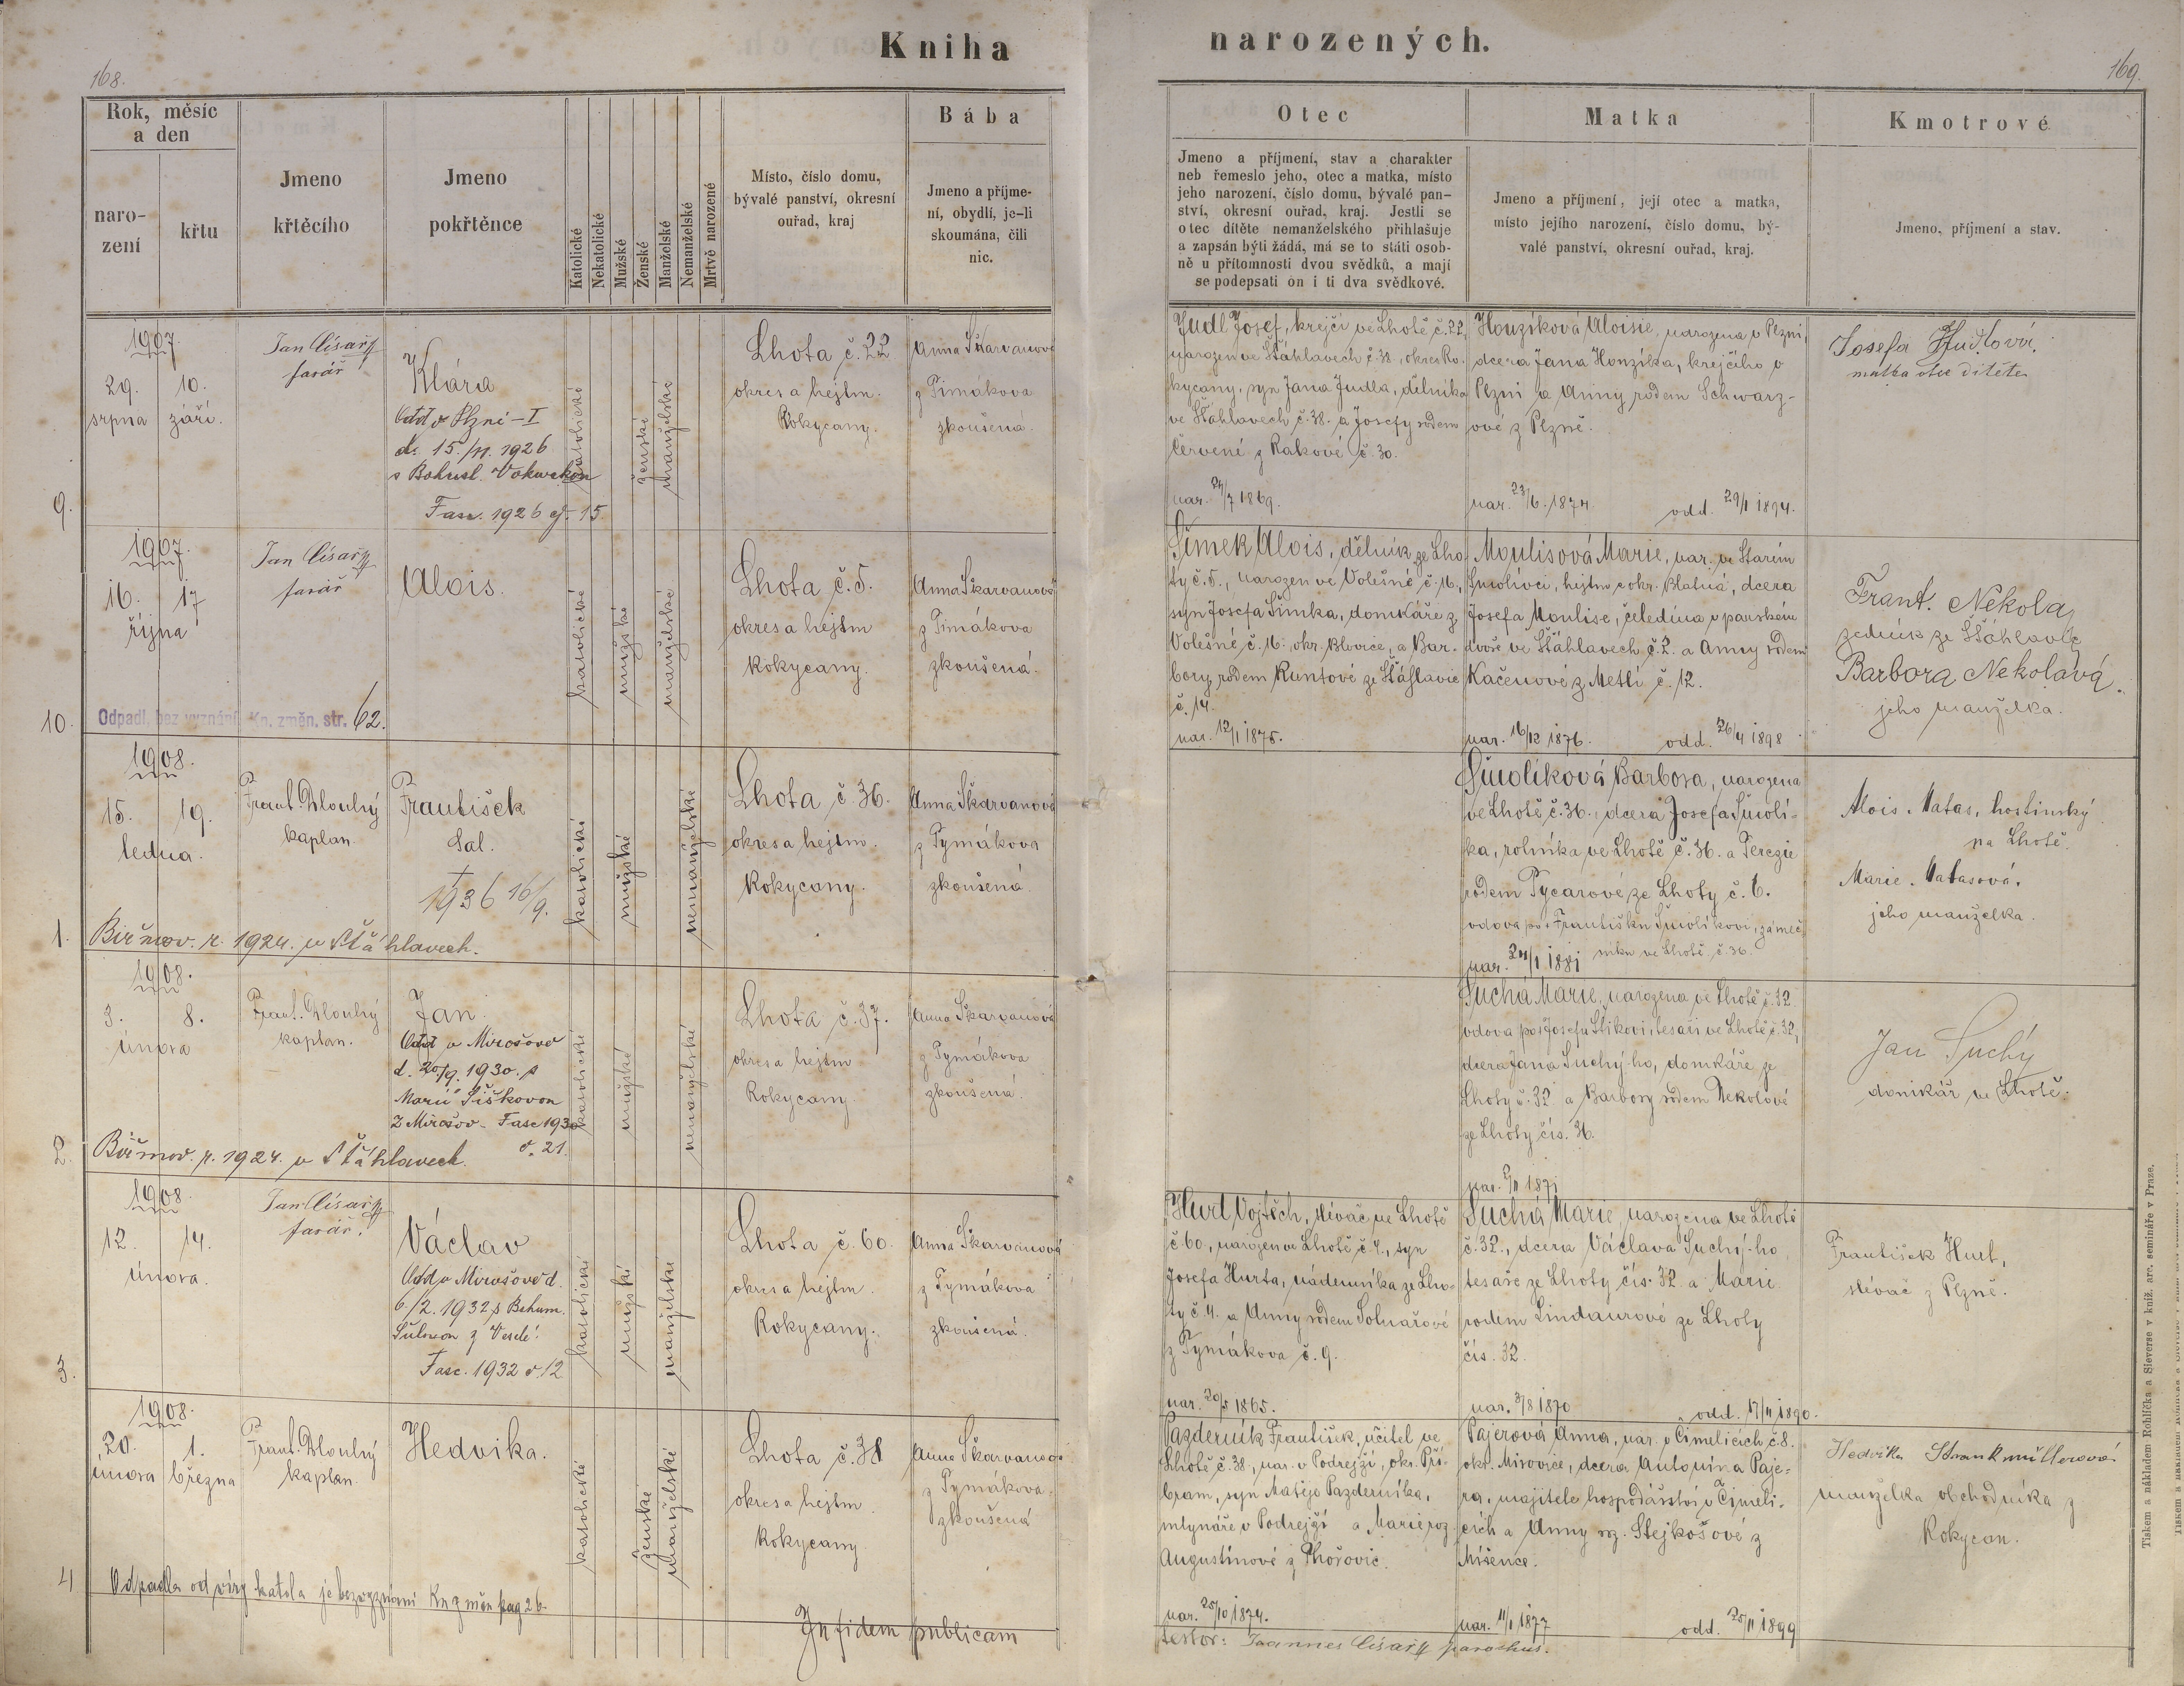 Kniha
narozených.
168.
169.
Rok, měsíc
a den
naro-
zení
křtu
Jmeno
křtěcího
Jmeno
pokřtěnce
Katolické
Nekatolické
Mužské
Ženské
Manželské
Nemanželské
Mrtvě narozené
Místo, číslo domu,
bývalé panství, okresní
ouřad, kraj
Bába
Jmeno a příjme-
ní, obydlí, je-li
skoumána, čili
nic.
Otec
Jmeno a příjmení, stav a charakter
neb řemeslo jeho, otec a matka, místo
jeho narození, číslo domu, bývalé pan-
ství, okresní ouřad, kraj. Jestli se
otec dítěte nemanželského přihlašuje
a zapsán býti žádá, má se to státi osob-
ně u přítomnosti dvou svědků, a mají
se podepsati on i ti dva svědkové.
Matka
Jmeno a příjmení, její otec a matka,
místo jejího narození, číslo domu, bý-
valé panství, okresní ouřad, kraj.
Kmotrové
Jmeno, příjmení a stav.
9.
1907.
29. 10.
srpna září.
Jan Císařž
farář
Klára
Odd v Plzni-I
d. 15./11. 1926
s Bohusl.
Fasc. 1926 čj. 15.
katolické
ženské
manželské
Lhota č. 22
okres a hejtm.
Rokycany.
Anna Škarvanová
z Timákova
zkoušena.
Judl Josef, krejčí ve Lhotě č. 22,
narozen ve Šťáhlavech č. 38., okres Ro-
kycany, syn Jana Judla, dělníka
ve Šťáhlavech č. 38. a Josefy rodem
Červené z Rakové č. 30.
nar. 24/7 1869.
Houzíková Aloisie, narozena v Plzni,
dcera Jana Honzíka, krejčího v
Plzni a Anny rodem Schwarz-
ové z Plzně.
nar. 23/6. 1874 odd. 29/1 1894.
Josefa Judlová,
matka otce dítěte
10.
1907.
16. 17
října
Jan Císařž
farář
Alois.
Odpadl, bez vyznání Kn. změn. str. 62.
katolické
mužské
manželské
Lhota č. 5.
okres a hejtm
Rokycany.
Anna Škarvanová
z Timákova
zkoušená.
Šimek Alois, dělník ze Lho-
ty č. 5., narozen ve Volešné č. 16.,
syn Josefa Šimka, domkáře z
Volešné č. 16. okr. Blovice, a Bar-
bory rodem Kuntové ze Šťáhlavic
č. 14.
nar. 12/1 1875.
Moulisová Marie, nar. ve Starém
Smolivci, hejtm a okr. Blatná, dcera
Josefa Moulise, čeledína v panském
dvoře ve Šťáhlavech č. 2. a Anny rodem
Kačenové z Metlí č. 12.
nar. 16/12 1876. odd. 26/4 1898
Frant. Nekola,
zedník ze Šťáhlavic
Barbora Nekolová.
jeho manželka.
1.
1908.
15. 19.
ledna.
Frant. Dlouhý
kaplan.
František
Sal.
† 1936 16/9.
Biřmov. r. 1924. v Šťáhlavech.
katolické
mužské
nemanželské
Lhota č. 36.
okres a hejtm.
Rokycany.
Anna Škarvanová
z Tymákova
zkoušená.
Smolíková Barbora, narozena
ve Lhotě č. 36., dcera Josefa Smolí-
ka, rolníka ve Lhotě č. 36. a Terezie
rodem Tycarové ze Lhoty č. 6.
vdova po † Františku Smolíkovi, zámeč-
níku ve Lhotě č. 36.
nar. 24/1 1881
Alois Matas, hostinský
na Lhotě.
Marie Matasová.
jeho manželka.
2.
1908.
3. 8.
února
Frant. Dlouhý
kaplan.
Jan.
Odd v Mirošově
d. 20./9. 1930. s
Marií Šiškovou
Z Mirošov- Fasc 1930
č. 21.
Biřmov. r. 1924. v Šťáhlavech.
katolické
mužské
nemanželské
Lhota č. 37.
okres a hejtm
Rokycany.
Anna Škarvanová
z Tymákova
zkoušená.
Suchá Marie, narozena ve Lhotě č. 32
vdova po † Josefu Štikovi, tesaři ve Lhotě č. 32,
dcera Jana Suchý-ho, domkáře ze
Lhoty č. 32 a Barbory rodem Nekolové
ze Lhoty čís. 36.
Jan Suchý
domkář ve Lhotě.
3.
1908
12. 14.
února.
Jan Císařž
farář.
Václav
Odd v Mirošově d.
6/2. 1932 s Bohum.
Fasc. 1932 č. 12
katolické
mužské
manželské
Lhota č. 60.
okres a hejtm.
Rokycany.
Anna Škarvanová
z Tymákova
zkoušená.
Hurt Vojtěch, slévač ve Lhotě
č 60., narozen ve Lhotě č. 4., syn
Josefa Hurta, nádeníka ze Lho-
ty č. 4. a Anny rodem Solnařové
z Tymákova č. 9.
nar. 20/5 1865.
Suchá Marie, narozena ve Lhotě
č. 32., dcera Václava Suchý-ho,
tesaře ze Lhoty čís. 32 a Marie
rodem Lindaurové ze Lhoty
čís. 32.
nar. 3/8 1870 odd. 17/11 1890.
František Hurt,
slévač z Plzně.
4
1908.
20. 1.
února března
Frant. Dlouhý
kaplan.
Hedvika.
Odpadla od víry katol a je bez vyznání Kn změn pag 26.
katolické
ženské
manželské
Lhota č. 38
okres a hejtm.
Rokycany.
Anna Škarvanová
z Tymákova.
zkoušená
Pazderník František, učitel ve
Lhotě č. 38., nar. v Podrejží, okr. Pří-
bram, syn Matěje Pazderníka,
mlynáře v Podrejží a Marie roz.
Augustinové z Thořovic.
nar. 25/10 1874.
Pajerová Anna, nar. v Čimelicích č. 8.
okr. Mirovice, dcera Antonína Paje-
ra, majitele hospodářství v Čimeli-
cích a Anny roz. Stejkošové z
Míšence.
nar. 11/1 1877 odd. 25/11 1899
Hedvika
manželka obchodníka z
Rokycan.
In fidem publicam
testor: Joannes Císařž parochus.
Tiskem a nákladem Rohlíčka a Sieverse v kniž. arc. semináře v Praze.